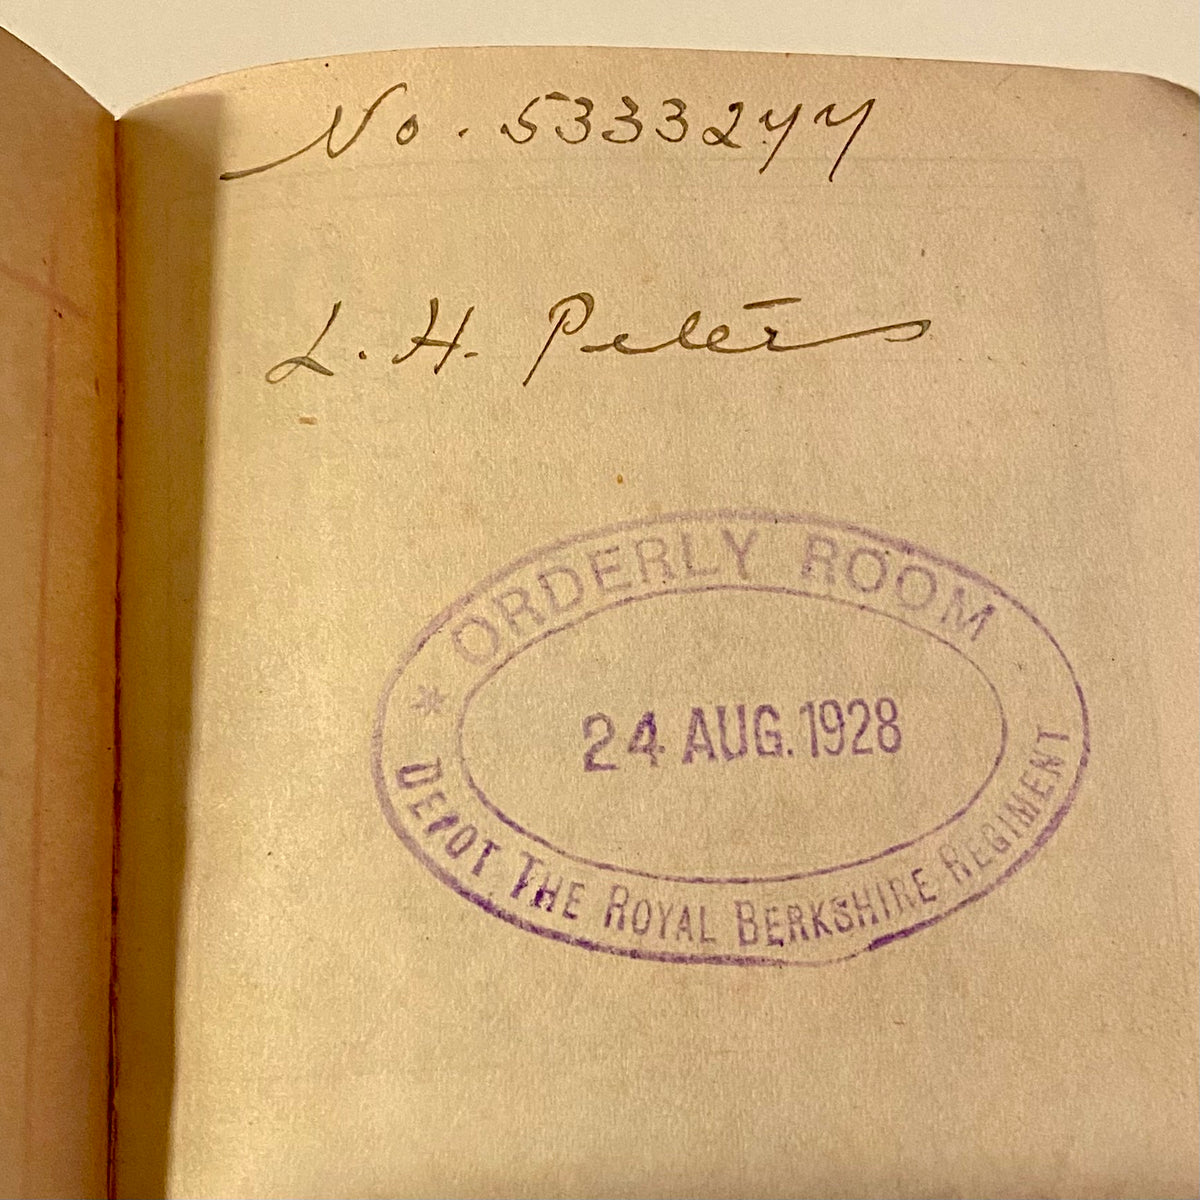 No. 5333277
L. H. Peters
ORDERLY ROOM
24 AUG. 1928
DEPOT THE ROYAL BERKSHIRE REGIMENT